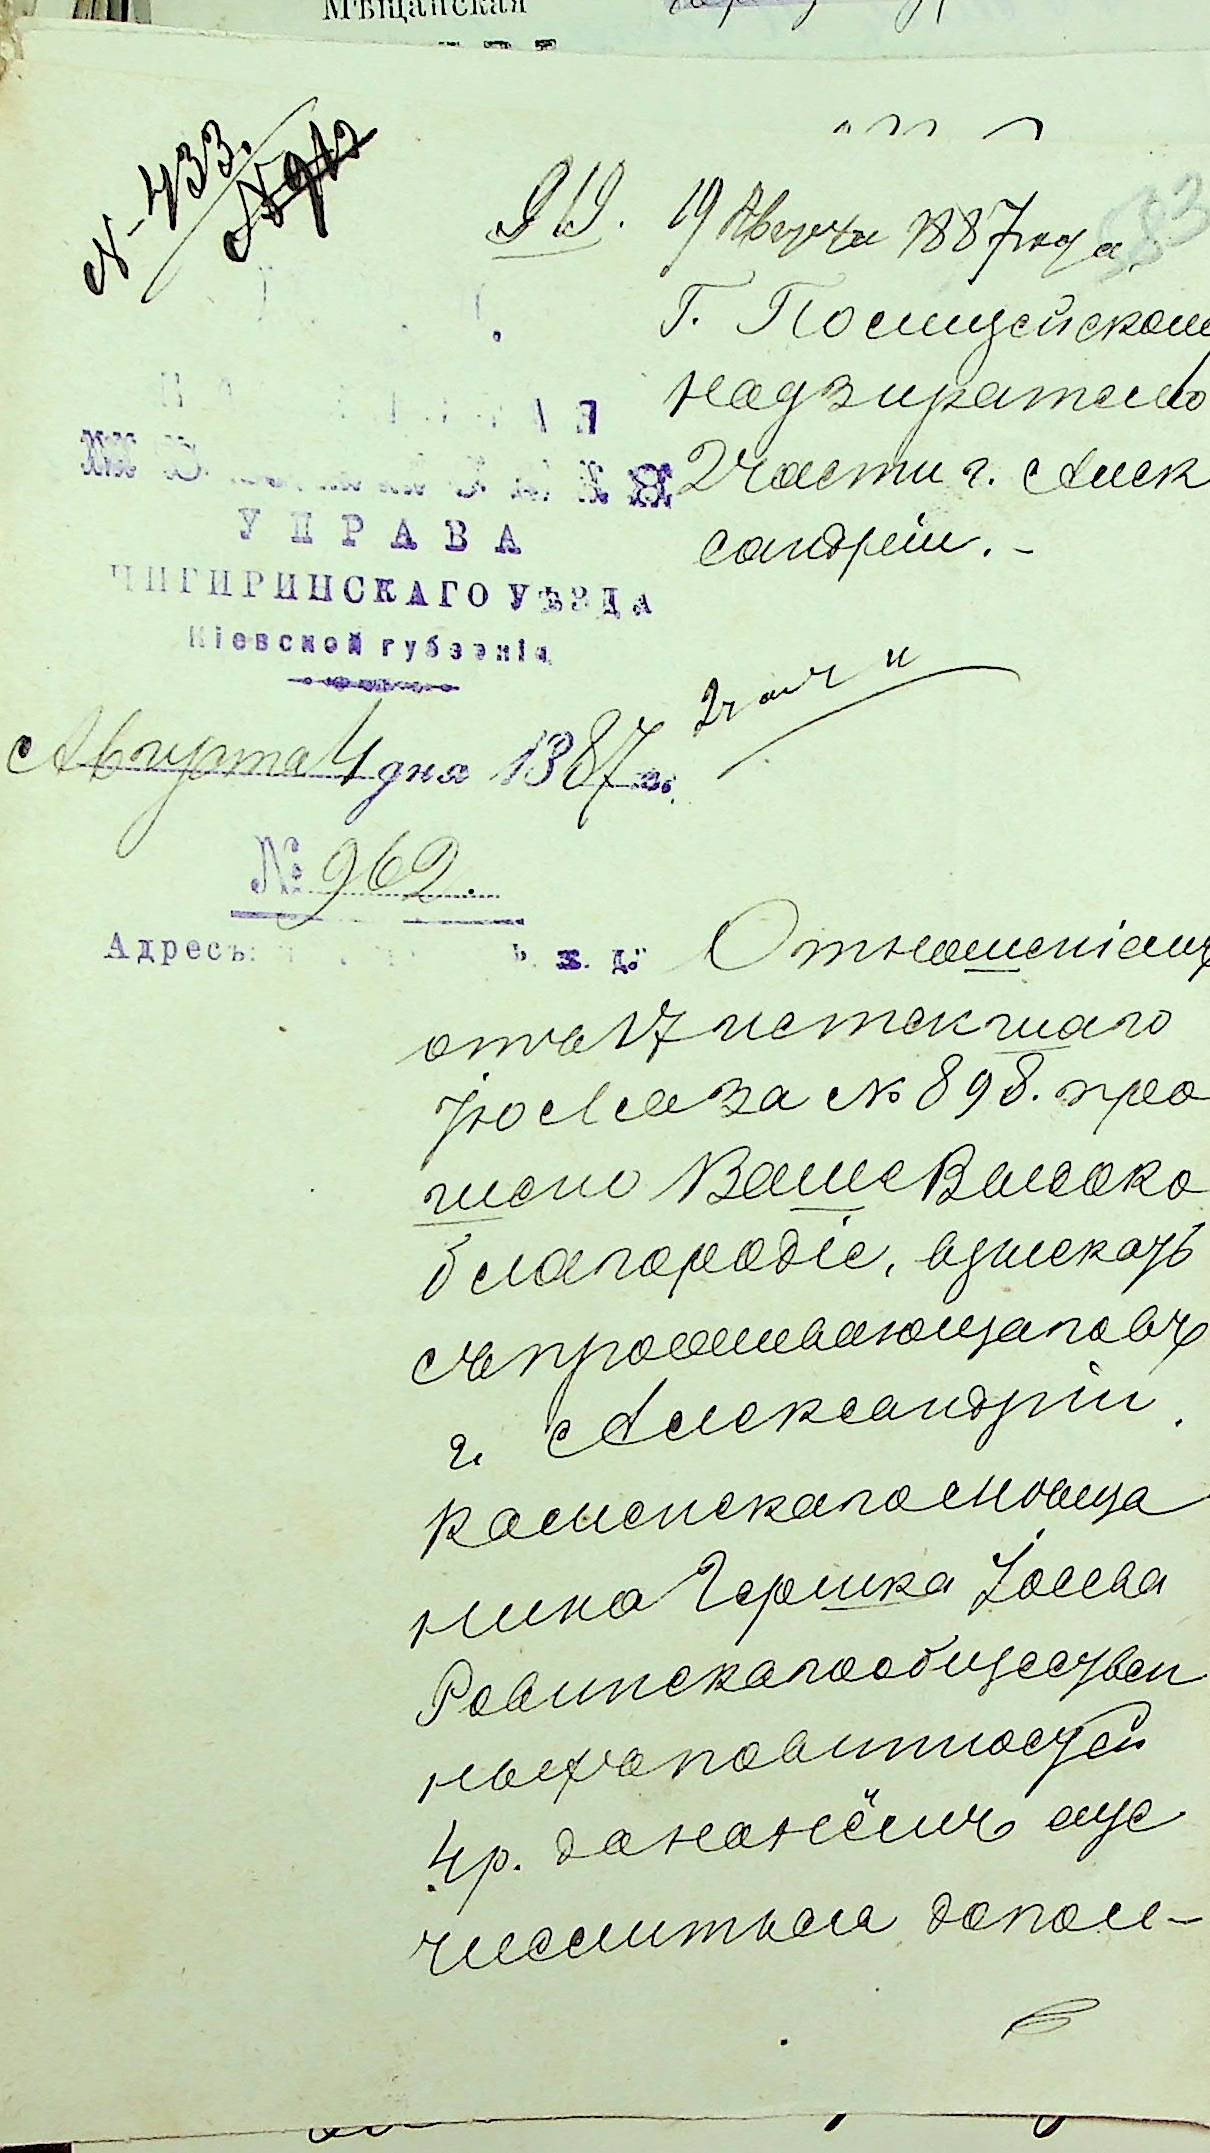 Мѣщанская
№ 433.
№ 912
19 Августа 1887 года
83
Г. Полицейскому
надзирателю
2 части г. Алек
сандріи. -
УПРАВА
ЧИГИРИНСКАГО УѢЗДА
Кіевской губерніи
Августа 4 дня 1887 г.
№ 962.
Адресъ: ж. д.
Отношеніемъ
отъ 17 истекшаго
Іюля за № 898. про
шено Ваше Высоко
благородіе, взыскать
съ проживающаго въ
г. Александріи
Каменскаго мѣща
нина Гершка Іосева
Ровинскаго обществен
ныхъ повинностей
4 р. да на нёмъ же
числиться допол-